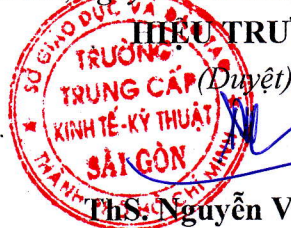 HIỆU TRƯ
(Duyệt)
SỞ GIÁO DỤC VÀ
TRƯỜNG
TRUNG CẤP
KINH TẾ-KỸ THUẬT
SÀI GÒN
THÀNH PHỐ HỒ CHÍ MINH
ThS. Nguyễn V